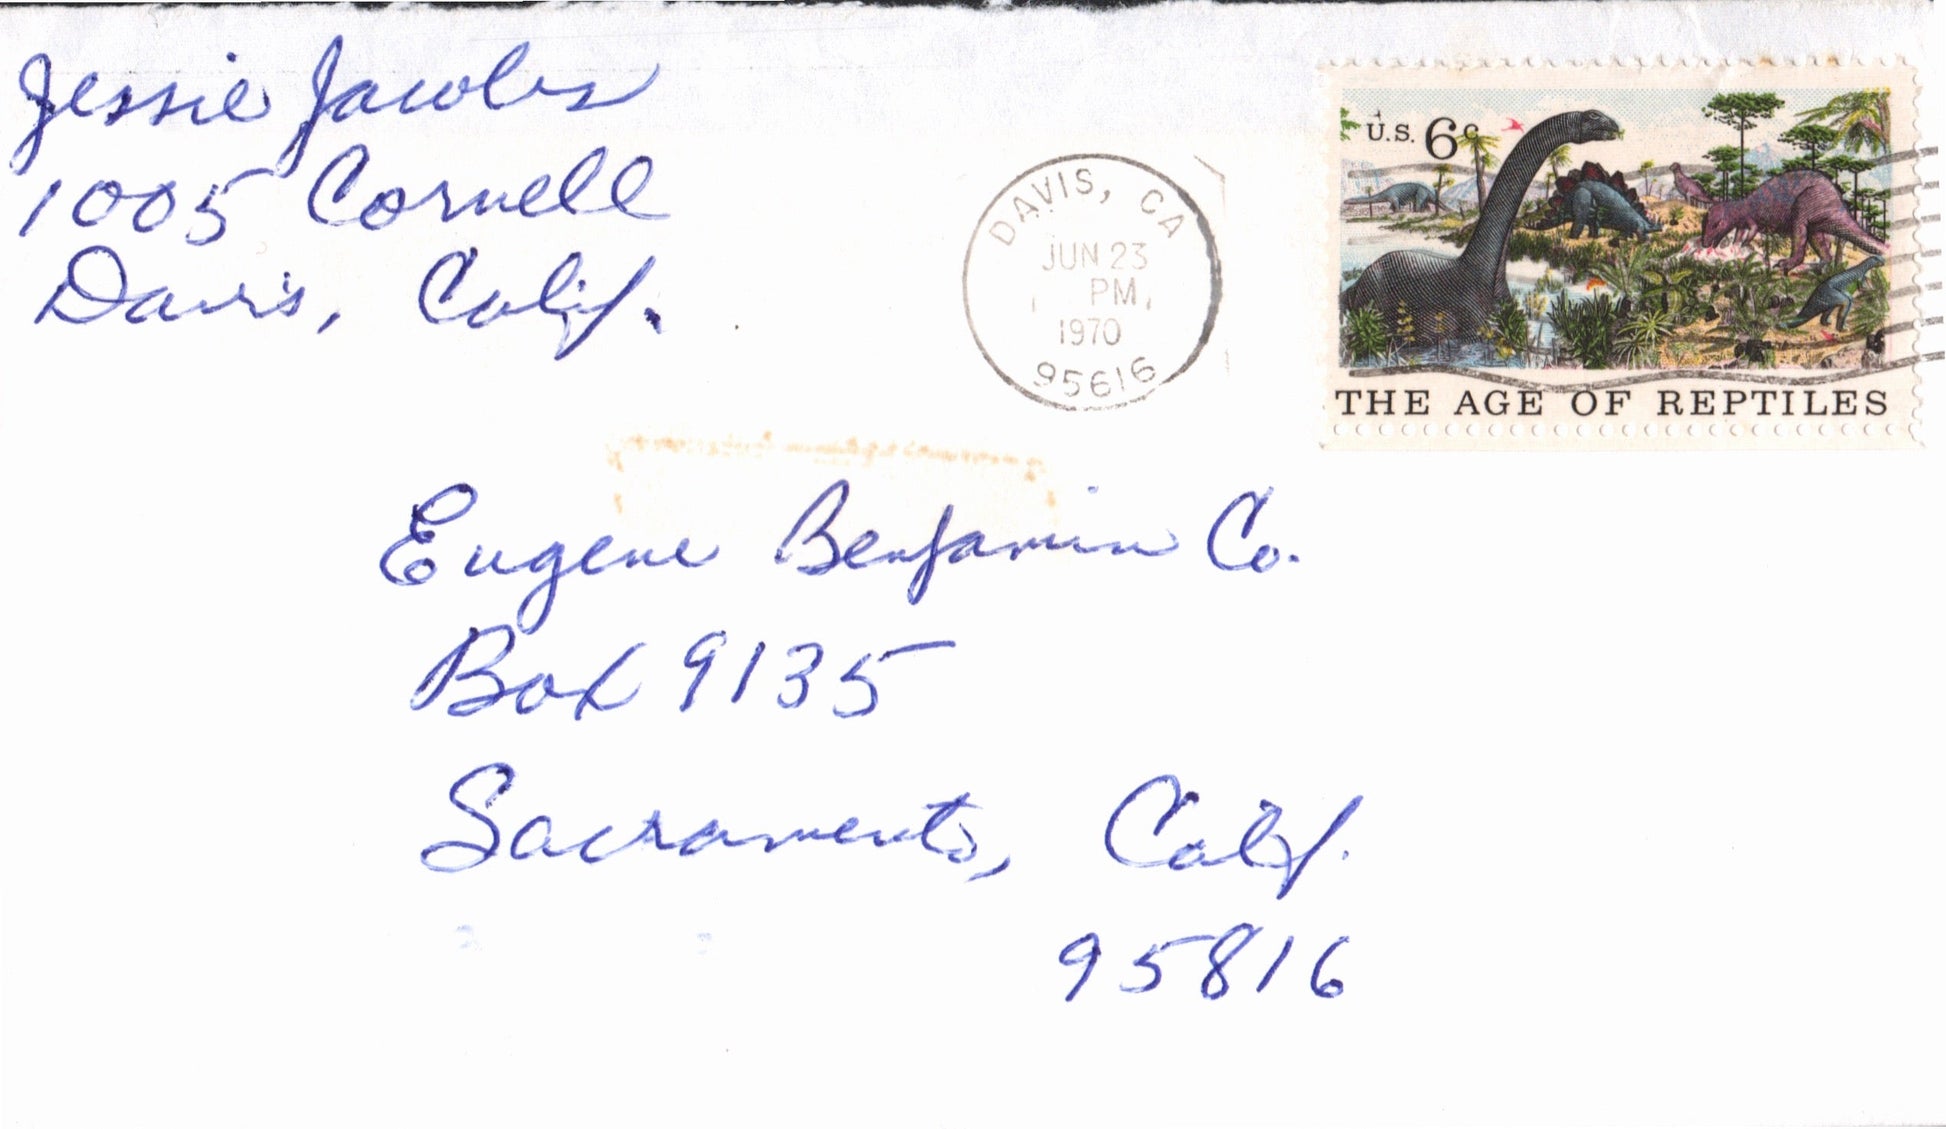 Jessie Jacobs
1005 Cornell
Davis, Calif.
DAVIS, CA
JUN 23
PM
1970
95616
U.S. 6c
THE AGE OF REPTILES
Eugene Benjamin Co.
Box 9135
Sacramento, Calif.
95816